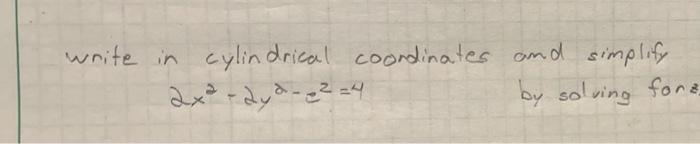 write in cylindrical coordinates and simplify
2x² - 2y² - z² = 4 by solving for z